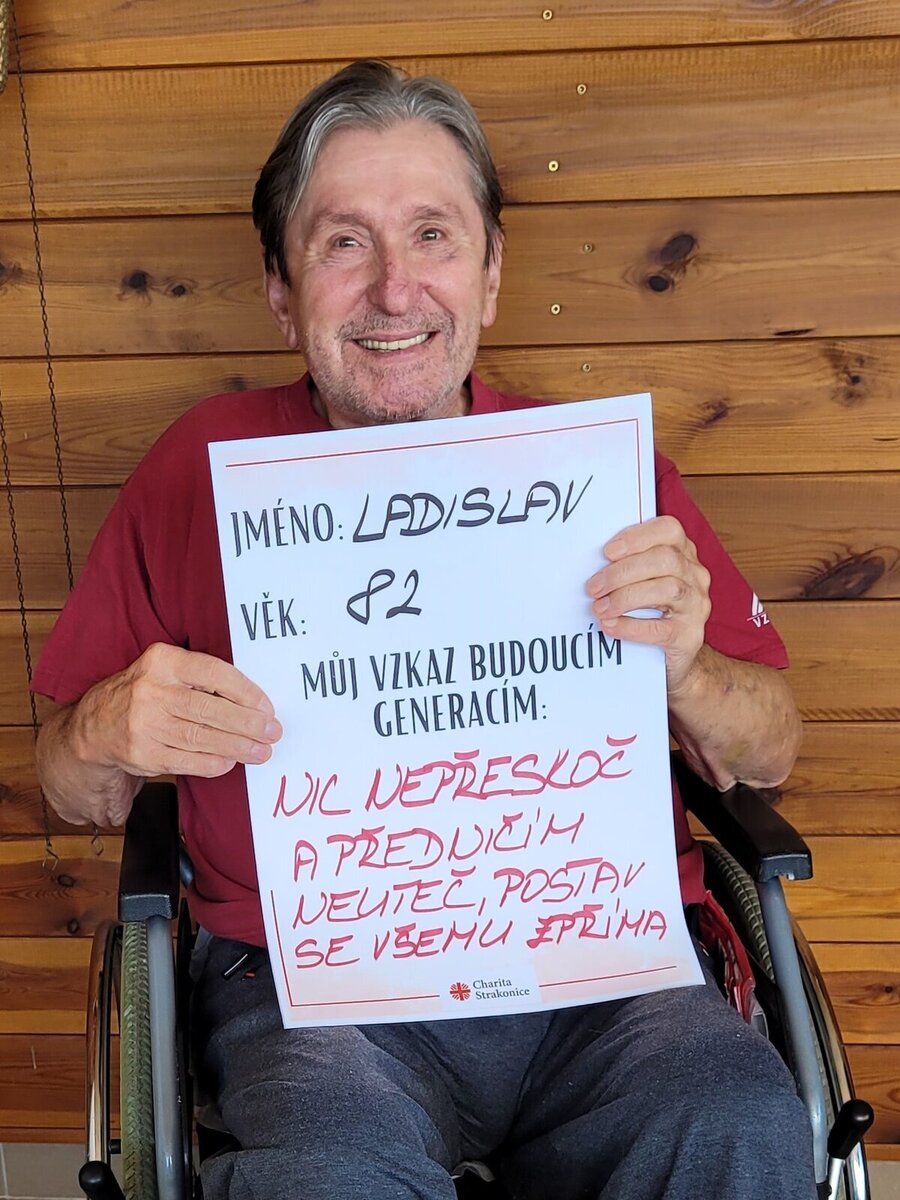 JMÉNO: LADISLAV
VĚK: 82
MŮJ VZKAZ BUDOUCÍM
GENERACÍM:
NIC NEPŘESKOČ
A PŘEDNIČÍM
NEUTEČ, POSTAV
SE VŠEMU ZPŘÍMA
Charita
Strakonice